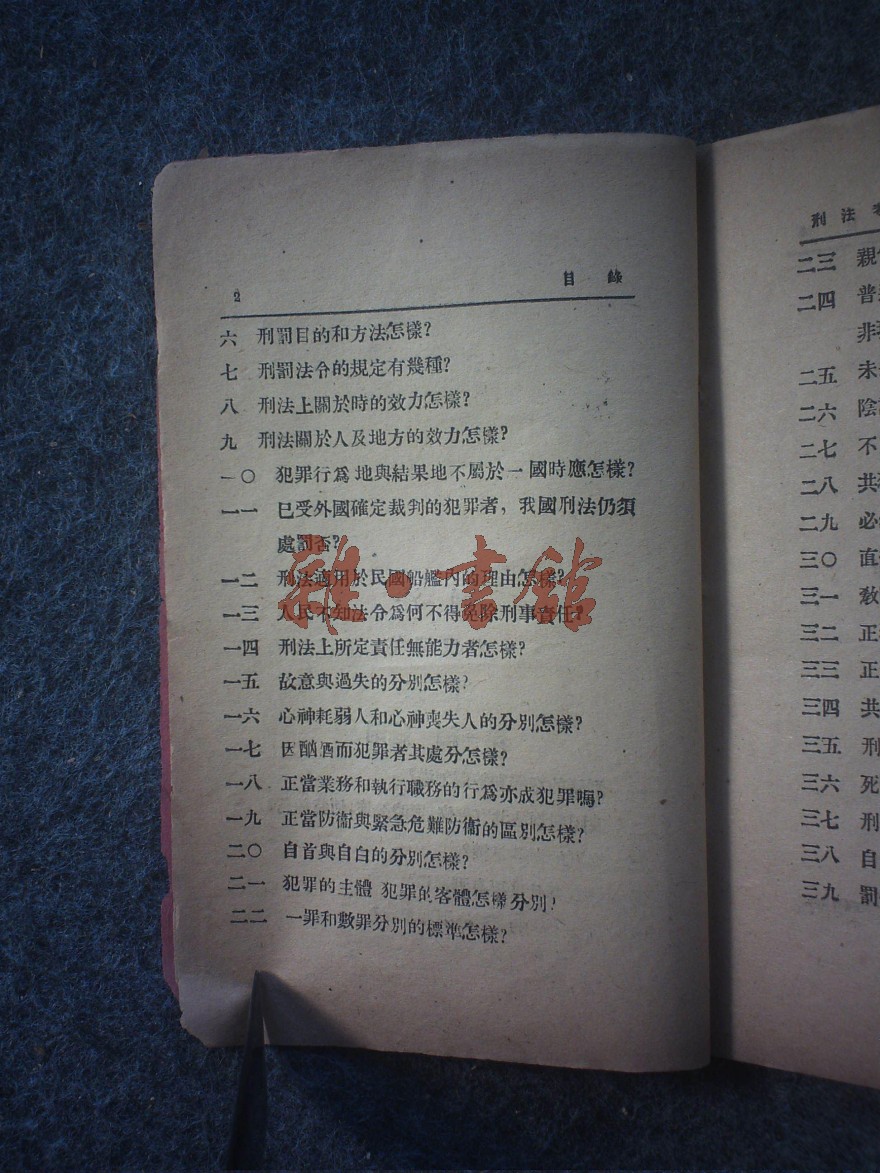 2 目錄
六 刑罰目的和方法怎樣?
七 刑罰法令的規定有幾種?
八 刑法上關於時的效力怎樣?
九 刑法關於人及地方的效力怎樣?
一〇 犯罪行爲地與結果地不屬於一國時應怎樣?
一一 已受外國確定裁判的犯罪者，我國刑法仍須
處罰否?
一二 刑法適用於民國船艦內的理由怎樣?
一三 人民不知法令爲何不得免除刑事責任?
一四 刑法上所定責任無能力者怎樣?
一五 故意與過失的分別怎樣?
一六 心神耗弱人和心神喪失人的分別怎樣?
一七 因酗酒而犯罪者其處分怎樣?
一八 正當業務和執行職務的行爲亦成犯罪嗎?
一九 正當防衞與緊急危難防衞的區別怎樣?
二〇 自首與自白的分別怎樣?
二一 犯罪的主體 犯罪的客體怎樣分別?
二二 一罪和數罪分別的標準怎樣?
雜·書館
刑法
二三 親
二四 普
非
二五 未
二六 陰
二七 不
二八 共
二九 必
三〇 直
三一 敎
三二 正
三三 正
三四 共
三五 刑
三六 死
三七 刑
三八 自
三九 罰